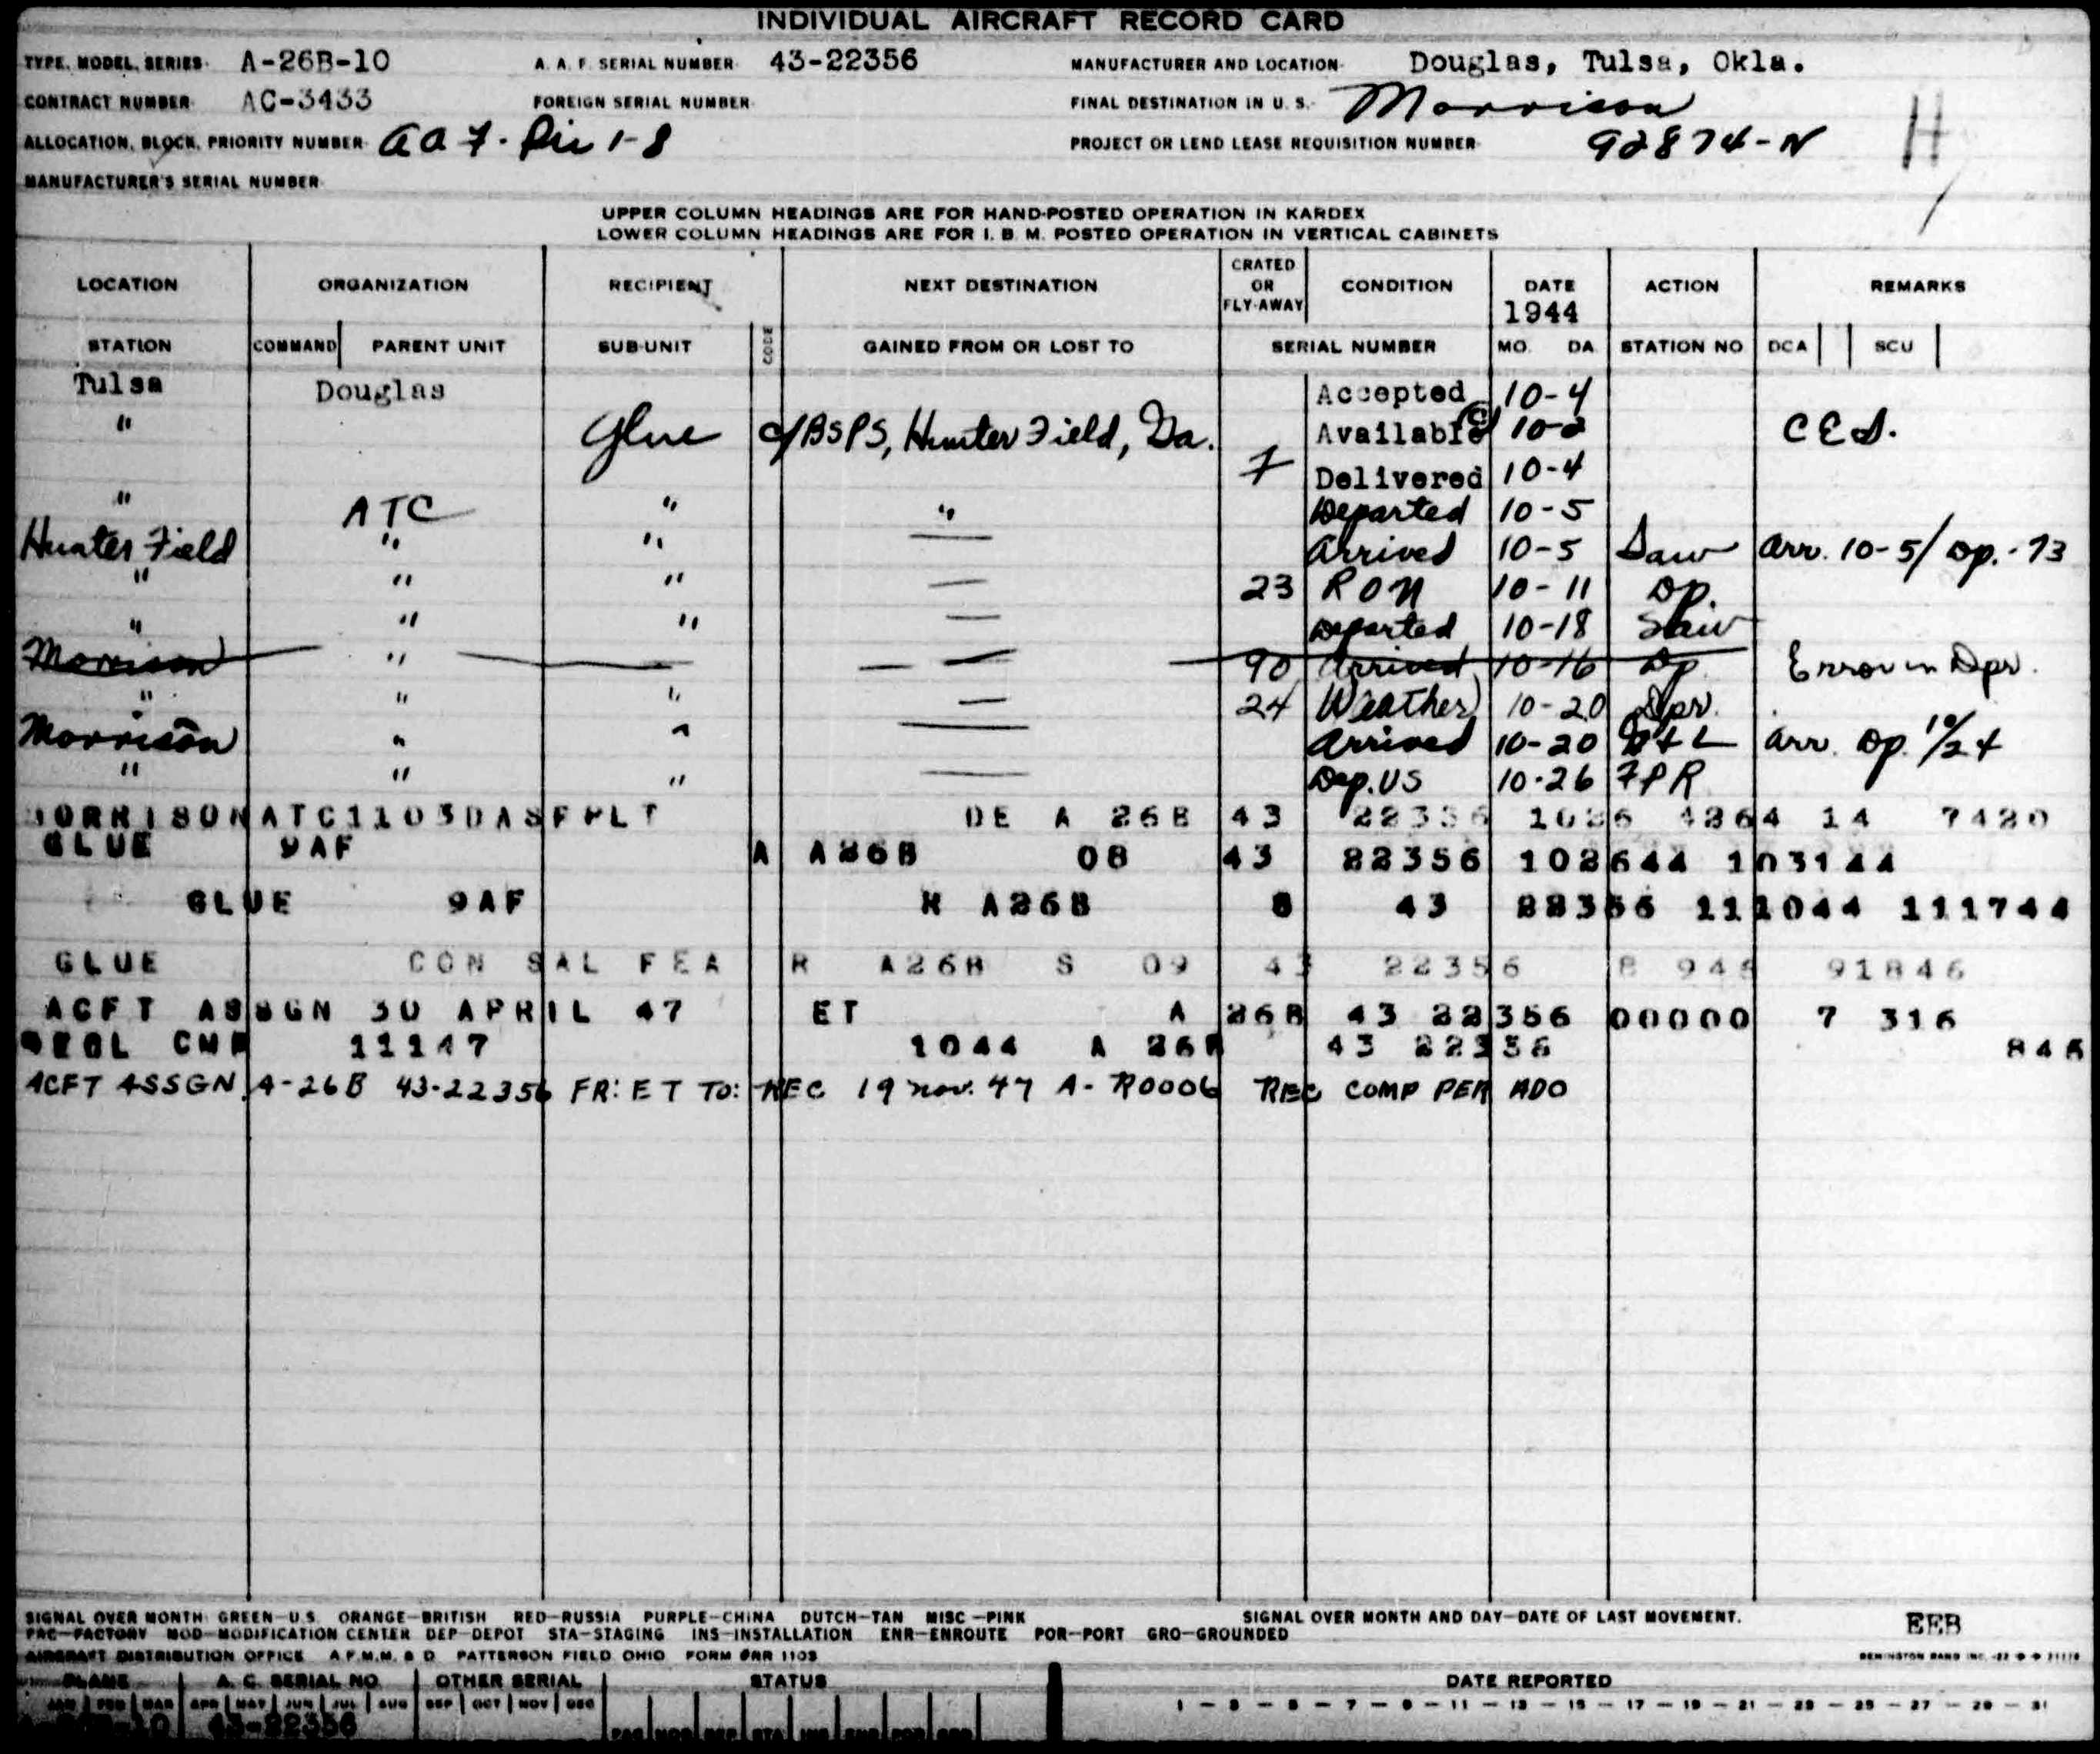 INDIVIDUAL AIRCRAFT RECORD CARD
TYPE, MODEL, SERIES A-26B-10 A. A. F. SERIAL NUMBER 43-22356 MANUFACTURER AND LOCATION Douglas, Tulsa, Okla.
CONTRACT NUMBER AC-3433 FOREIGN SERIAL NUMBER FINAL DESTINATION IN U. S. Morrison
ALLOCATION, BLOCK, PRIORITY NUMBER AAF. Dir 1-8 PROJECT OR LEND LEASE REQUISITION NUMBER 92874-N H
MANUFACTURER'S SERIAL NUMBER
UPPER COLUMN HEADINGS ARE FOR HAND-POSTED OPERATION IN KARDEX
LOWER COLUMN HEADINGS ARE FOR I. B. M. POSTED OPERATION IN VERTICAL CABINETS
LOCATION ORGANIZATION RECIPIENT NEXT DESTINATION CRATED OR FLY-AWAY CONDITION DATE 1944 ACTION REMARKS
STATION COMMAND PARENT UNIT SUB-UNIT CODE GAINED FROM OR LOST TO SERIAL NUMBER MO. DA. STATION NO DCA SCU
Tulsa Douglas Accepted 10-4
" Glue c/BSPS, Hunter Field, Ga. Available 10-2 CED.
F Delivered 10-4
" ATC " " Departed 10-5
Hunter Field " " — Arrived 10-5 Saw Arr. 10-5/Dp.-73
" " " — 23 RON 10-11 Dp.
" " " — Departed 10-18 Saw
Morrison " — — 90 Arrived 10-16 Dp Error in Dpr.
" " " — 24 Weather 10-20 Dpr.
Morrison " " — Arrived 10-20 Arr. Dp. 10/24
" " " — Dep. US 10-26 FPR
MORRISON ATC1103DASFPLT DE A 26B 43 22356 1026 4264 14 7420
GLUE 9AF A A26B 08 43 22356 102644 103144
GLUE 9AF R A26B 8 43 22356 111044 111744
GLUE CON SAL FEA R A26B S 09 43 22356 8 945 91846
ACFT ASSGN 30 APRIL 47 ET A 26B 43 22356 00000 7 316
RECL CMP 11147 1044 A 26B 43 22356 845
ACFT ASSGN A-26B 43-22356 FR: ET TO: REC 19 Nov. 47 A-R0006 REC COMP PER ADO
SIGNAL OVER MONTH: GREEN—U.S. ORANGE—BRITISH RED—RUSSIA PURPLE—CHINA DUTCH—TAN MISC—PINK SIGNAL OVER MONTH AND DAY—DATE OF LAST MOVEMENT.
FAC—FACTORY MOD—MODIFICATION CENTER DEP—DEPOT STA—STAGING INS—INSTALLATION ENR—ENROUTE POR—PORT GRO—GROUNDED EEB
AIRCRAFT DISTRIBUTION OFFICE A.F.M.M. & D. PATTERSON FIELD OHIO FORM ARR 1103 REMINGTON RAND INC.
PLANE A. C. SERIAL NO. OTHER SERIAL STATUS DATE REPORTED
JAN FEB MAR APR MAY JUN JUL AUG SEP OCT NOV DEC 1 — 3 — 5 — 7 — 9 — 11 — 13 — 15 — 17 — 19 — 21 — 23 — 25 — 27 — 29 — 31
43-22356 FAC MOD DEP STA INS ENR POR GRO